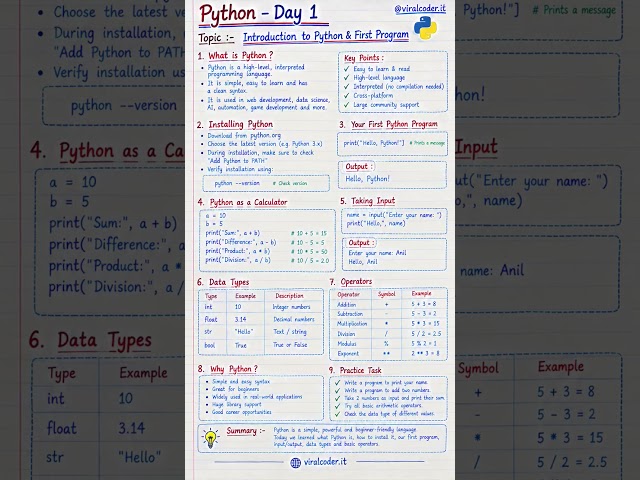 Python - Day 1
@viralcoder.it
Topic :- Introduction to Python & First Program
1. What is Python ?
• Python is a high-level, interpreted
programming language.
• It is simple, easy to learn and has
a clean syntax.
• It is used in web development, data science,
AI, automation, game development and more.
Key Points :
✓ Easy to learn & read
✓ High-level language
✓ Interpreted (no compilation needed)
✓ Cross-platform
✓ Large community support
2. Installing Python
• Download from python.org
• Choose the latest version (e.g. Python 3.x)
• During installation, make sure to check
"Add Python to PATH"
• Verify installation using:
python --version # Check version
3. Your First Python Program
print("Hello, Python!") # Prints a message
Output :
Hello, Python!
4. Python as a Calculator
a = 10
b = 5
print("Sum:", a + b) # 10 + 5 = 15
print("Difference:", a - b) # 10 - 5 = 5
print("Product:", a * b) # 10 * 5 = 50
print("Division:", a / b) # 10 / 5 = 2.0
5. Taking Input
name = input("Enter your name: ")
print("Hello,", name)
Output :
Enter your name: Anil
Hello, Anil
6. Data Types
Type Example Description
int 10 Integer numbers
float 3.14 Decimal numbers
str "Hello" Text / string
bool True True or False
7. Operators
Operator Symbol Example
Addition + 5 + 3 = 8
Subtraction - 5 - 3 = 2
Multiplication * 5 * 3 = 15
Division / 5 / 2 = 2.5
Modulus % 5 % 2 = 1
Exponent ** 2 ** 3 = 8
8. Why Python ?
• Simple and easy syntax
• Great for beginners
• Widely used in real-world applications
• Huge library support
• Good career opportunities
9. Practice Task
✓ Write a program to print your name.
✓ Write a program to add two numbers.
✓ Take 2 numbers as input and print their sum.
✓ Try all basic arithmetic operators.
✓ Check the data type of different values.
Summary :- Python is a simple, powerful and beginner-friendly language.
Today we learned what Python is, how to install it, our first program,
input/output, data types and basic operators.
viralcoder.it
• Choose the latest v
• During installation,
"Add Python to PATH"
• Verify installation us
python --version
4. Python as a Ca
a = 10
b = 5
print("Sum:", a + b)
print("Difference:", a
print("Product:", a *
print("Division:", a /
6. Data Types
Type Example
int 10
float 3.14
str "Hello"
Python!"] # Prints a message
hon!
Input
ut("Enter your name: ")
lo,", name)
name: Anil
Symbol Example
+ 5 + 3 = 8
- 5 - 3 = 2
* 5 * 3 = 15
/ 5 / 2 = 2.5